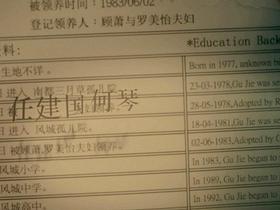 被领养时间：1983/06/02
登记领养人：顾萧与罗美怡夫妇
料：
*Education Back
生地不详。
Born in 1977, unknown b
日进入 南都三月草孤儿院
23-03-1978,Gu Jie was se
任建国何琴
28-05-1978,Adopted by
日 进入 风城孤儿院。
18-04-1981,Gu Jie was s
日 被顾萧与罗美怡夫妇领养。
02-06-1983,Adopted by C
风城小学。
In 1983, Gu Jie began to
风城中学。
In 1989, Gu Jie began to
风城高中。
In 1992, Gu Jie began to